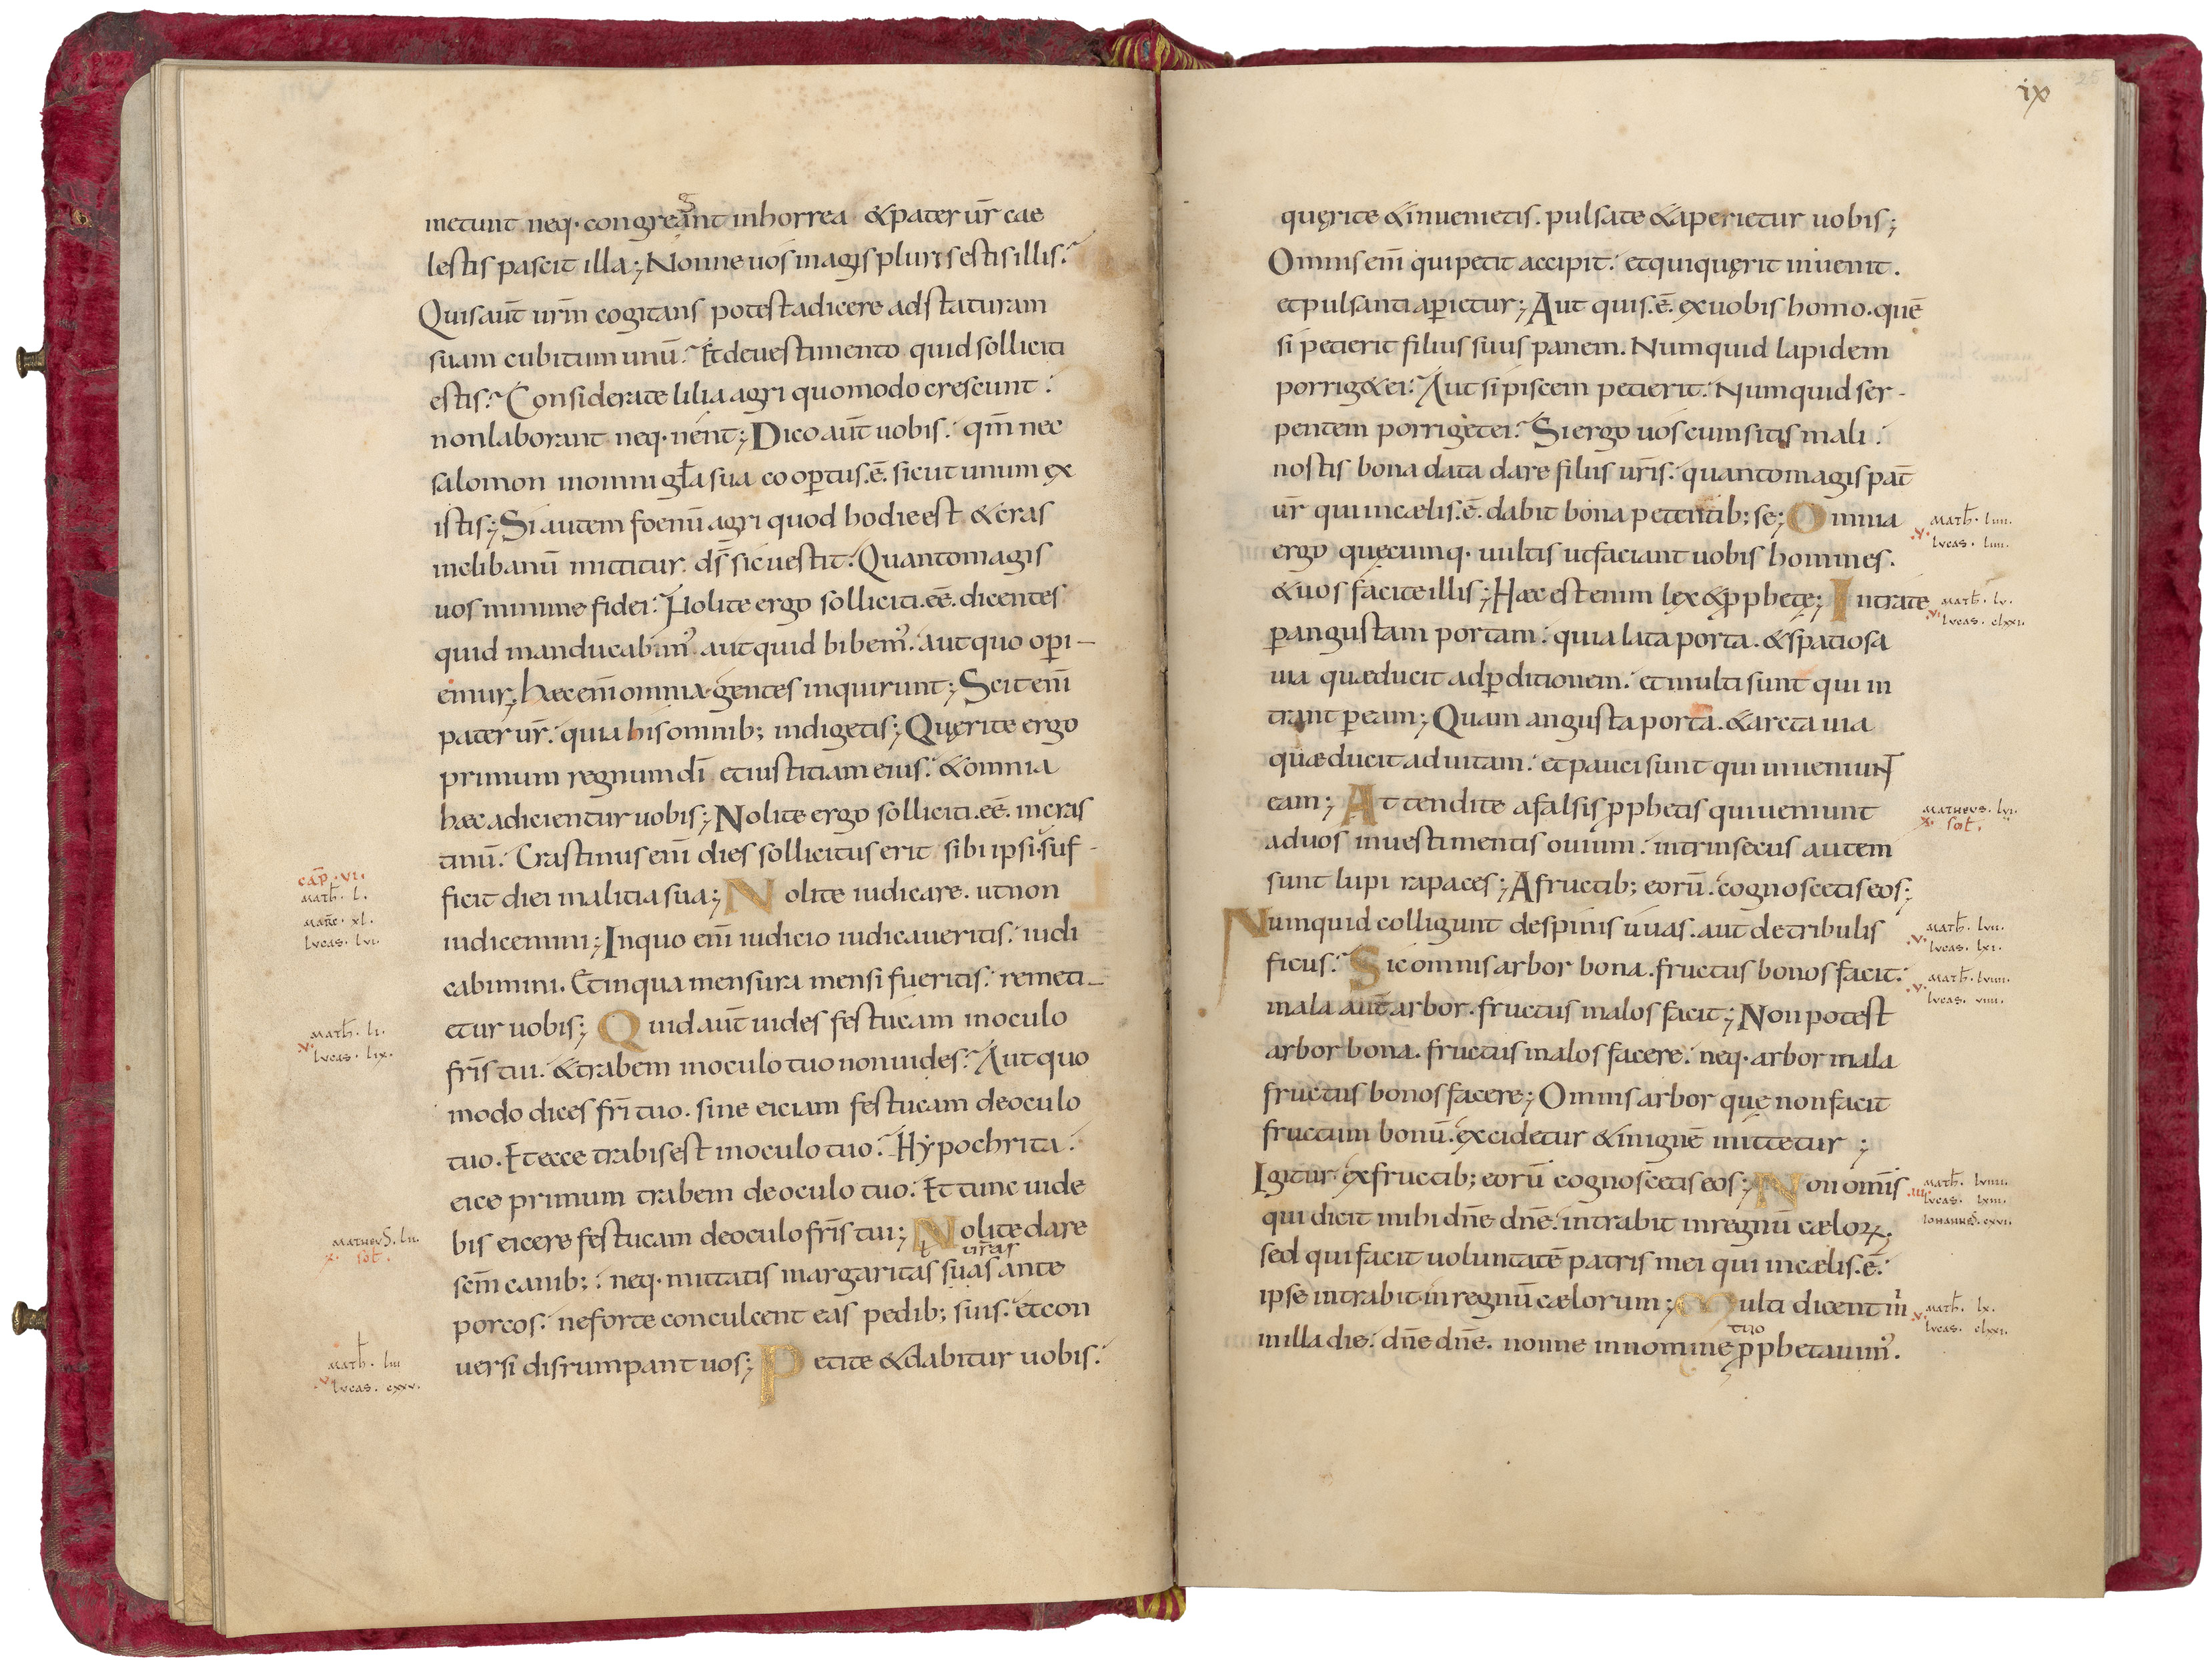 metunt neq· congreant inhorrea &pater ur̄ cae
g
lestis pascit illa; Nonne uos magis pluris estis illis?
Quis aut̄ ur̄m cogitans potest adicere ad staturam
suam cubitum unū? Et de uestimento quid solliciti
estis? Considerate lilia agri quomodo crescunt:
non laborant neq· nent; Dico aut̄ uobis. qm̄ nec
salomon in omni gła sua coopertus .ē. sicut unum ex
istis; Si autem foenū agri quod hodie est & cras
inclibanū mittitur. ds̄ sic uestit. Quanto magis
uos minime fidei? Nolite ergo solliciti .eē. dicentes
quid manducabim᾽ aut quid bibem᾽. aut quo op̄i-
emur; haec em̄ omnia gentes inquirunt; Scit em̄
pater ur̄. quia his omnib; indigetis; Quęrite ergo
primum regnum dī et iustitiam eius. & omnia
haec adicientur uobis; Nolite ergo solliciti .eē. in cras
tinū. Crastinus em̄ dies sollicitus erit sibi ipsi. suf-
cap̄. vi.
math. l.
marc. xl.
lucas. lvi.
ficit diei malitia sua; Nolite iudicare. ut non
iudicemini; In quo em̄ iudicio iudicaueritis. iudi
cabimini. Et in qua mensura mensi fueritis. remeti-
math. li.
v.
lucas. lix.
etur uobis; Quid aut̄ uides festucam in oculo
fr̄is tui. & trabem in oculo tuo non uides? Aut quo
modo dices fr̄i tuo. sine eiciam festucam de oculo
tuo. Et ecce trabis est in oculo tuo? Hẏpochrita.
eice primum trabem de oculo tuo. Et tunc uide
matheus. lii.
x. sol̄.
bis eicere festucam de oculo fr̄is tui; Nolite dare
ur̄as
scm̄ canib; neq· mittatis margaritas suas ante
porcos. ne forte conculcent eas pedib; suis. et con
math. liii
v.
lucas. cxxv.
uersi disrumpant uos; Petite & dabitur uobis.
ix
quęrite & inuenietis. pulsate & aperietur uobis;
Omnis em̄ qui petit accipit. et qui quęrit inuenit.
et pulsanti ap̄ietur; Aut quis .ē. ex uobis homo. quē
si petierit filius suus panem. Numquid lapidem
porrig& ei? Aut si piscem petierit. Numquid ser-
pentem porriget ei? Si ergo uos cum sitis mali.
nostis bona data dare filiis ur̄is. quanto magis pat̄
ur̄ qui in cælis .ē. dabit bona petentib; se; Omnia
math. liiii.
v.
lucas. liiii.
ergo quęcumq· uultis ut faciant uobis homines.
& uos facite illis; Hæc est enim lex & p̄phetę; Intrate
math. lv.
v.
lucas. clxxi.
p̄ angustam portam. quia lata porta. & spatiosa
uia quæ ducit ad p̄ditionem. et multi sunt qui in
trant p̄ eam; Quam angusta porta. & arcta uia
quæ ducit ad uitam. et pauci sunt qui inueniunt
eam; Attendite a falsis p̄phetis qui ueniunt
matheus. lvi.
x. sol̄.
ad uos in uestimentis ouium. intrinsecus autem
sunt lupi rapaces; A fructib; eorū. cognoscetis eos;
Numquid colligunt de spinis uuas. aut de tribulis
math. lvii.
v.
lucas. lxi.
ficus? Sic omnis arbor bona. fructus bonos facit.
math. lviii.
v.
lucas. viiii.
mala aut̄ arbor. fructus malos facit; Non potest
arbor bona. fructus malos facere. neq· arbor mala
fructus bonos facere; Omnis arbor quę non facit
fructum bonū. excidetur & in ignē mittetur;
Igitur ex fructib; eorū cognoscetis eos; Non omīs
math. lviiii.
iii.
lucas. lxiii.
iohannes. cxvi.
qui dicit mihi dn̄e dn̄e. intrabit in regnū cæloꝝ.
sed qui facit uoluntatē patris mei qui in cælis .ē.
ipse intrabit in regnū cælorum; Multi dicent m̄
math. lx.
v.
lucas. clxxi.
tuo
in illa die. dn̄e dn̄e. nonne in nomine p̄phetauim᾽.